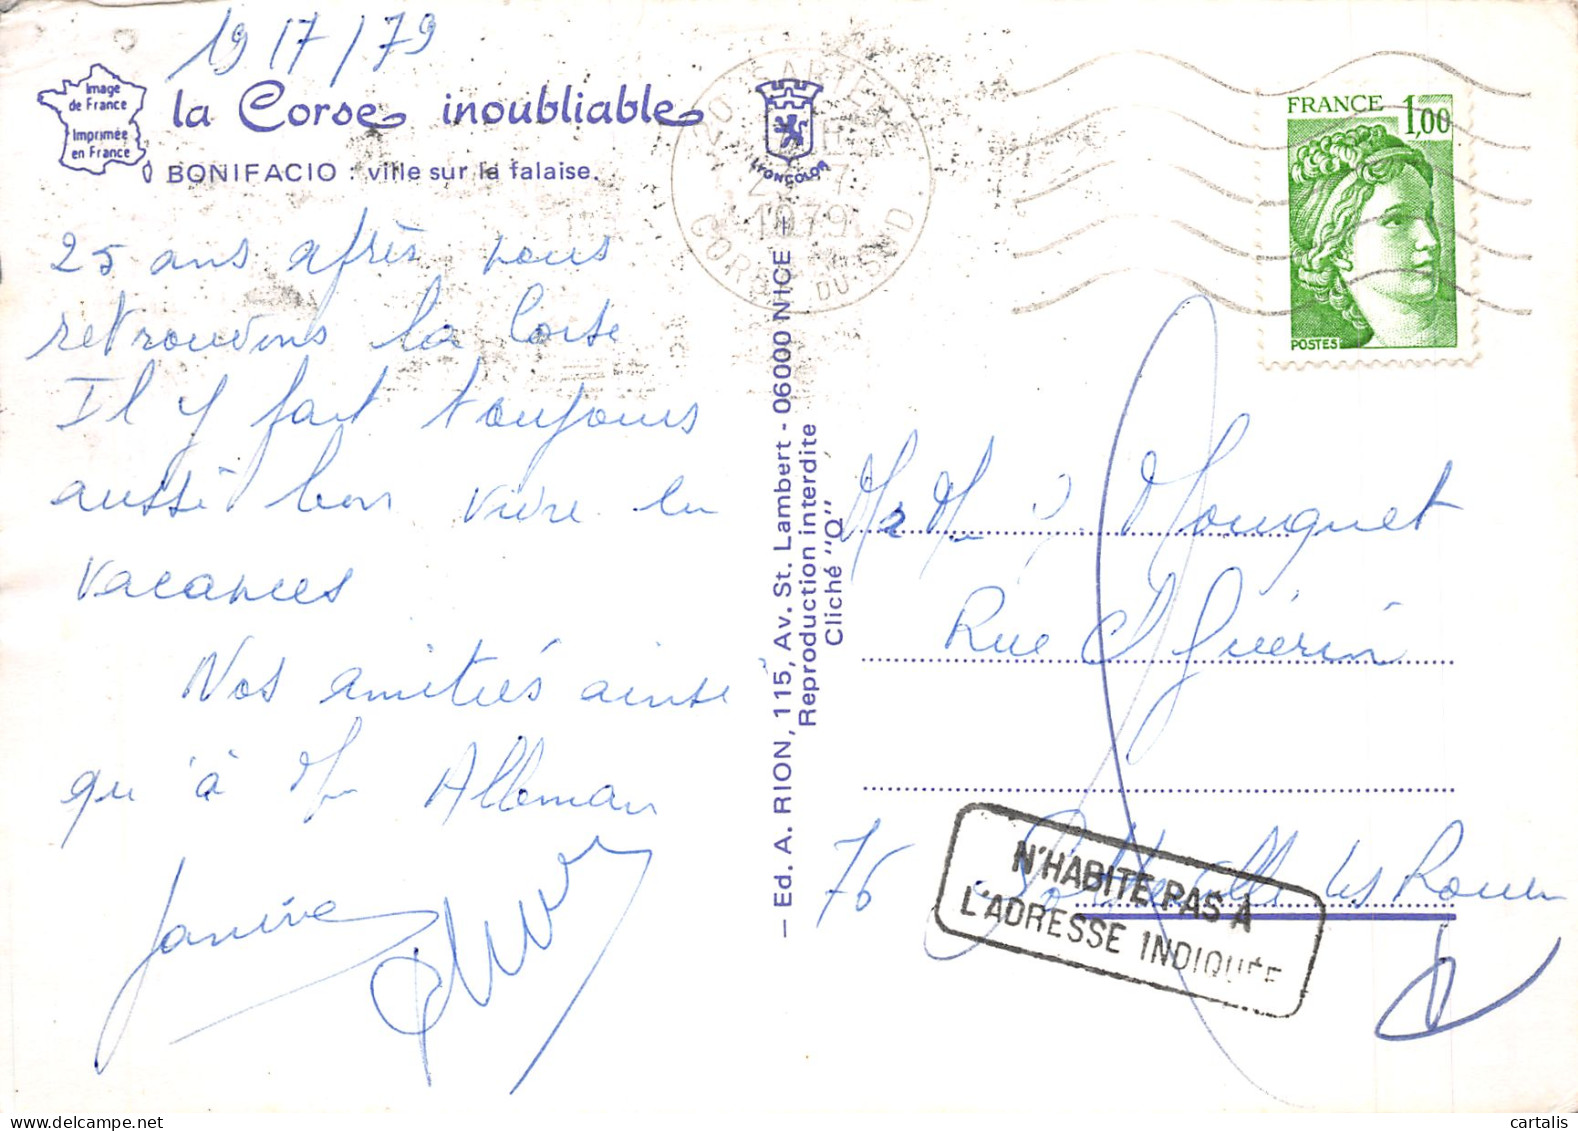 19/7/79
Image
de France
Imprimée
en France
la Corse inoubliable
BONIFACIO : ville sur la falaise.
LYONCOLOR
20 SARTENE
1979
CORSE DU SUD
FRANCE 1,00
POSTES
25 ans après nous
retrouvons la Corse
Il y fait toujours
aussi bon vivre en
vacances
Nos amitiés ainsi
qu'à Mr Alleman
Janine
— Ed. A. RION, 115, Av. St. Lambert - 06000 NICE —
Reproduction interdite
Cliché "Q"
Mr Mme Mouquet
Rue Guérin
76 Sotteville les Rouen
N'HABITE PAS A
L'ADRESSE INDIQUÉE
cartalis